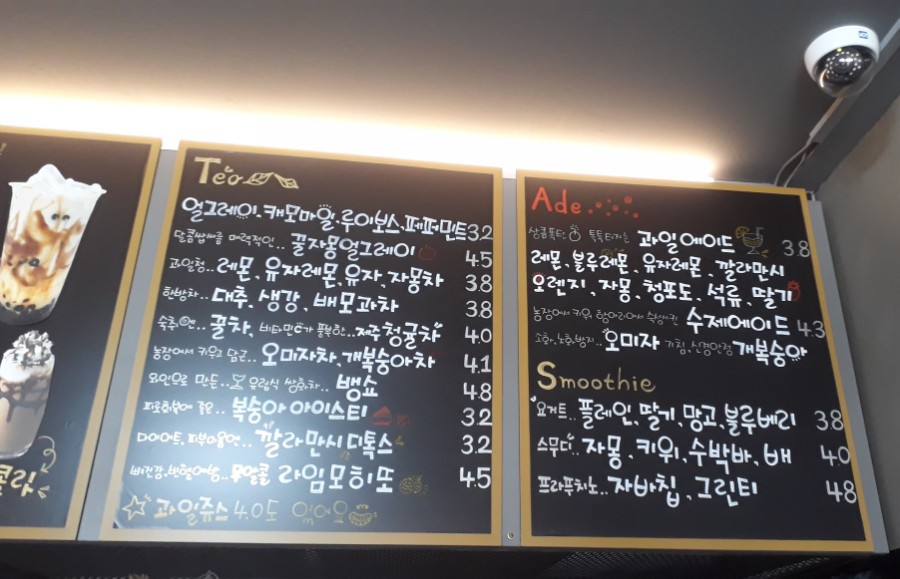 Tea
얼그레이.캐모마일.루이보스.페퍼민트 3.2
달콤쌉싸름 매력적인.. 꿀자몽얼그레이 4.5
과일청.. 레몬, 유자레몬, 유자, 자몽차 3.8
한방차.. 대추, 생강, 배모과차 3.8
숙취엔.. 꿀차, 비타민C가 풍부한.. 제주청귤차 4.0
농장에서 키우고 담근.. 오미자차, 개복숭아차 4.1
와인으로 만든.. 유럽식 쌍화차.. 뱅쇼 4.8
피로회복에 좋은.. 복숭아 아이스티 3.2
다이어트, 피부미용엔.. 깔라만시 디톡스 3.2
무알콜 라임모히또 4.5
과일쥬스 4.0도 있어요
콜릿
Ade
상큼폭탄 톡톡터지는 과일에이드 3.8
레몬, 블루레몬, 유자레몬, 깔라만시
오렌지, 자몽, 청포도, 석류, 딸기
농장에서 키워 항아리에서 숙성시킨 수제에이드 4.3
소화, 노화방지.. 오미자 기침, 신경안정 개복숭아
Smoothie
요거트.. 플레인, 딸기, 망고, 블루베리 3.8
스무디.. 자몽, 키위, 수박바, 배 4.0
프라푸치노.. 자바칩, 그린티 4.8